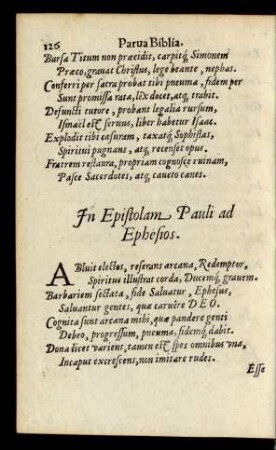 126 Parua Biblia.
Bursa Titum non præcidit, carpitq́; Simonem
Præco, grauat Christus, lege beante, nephas.
Conferri per sacra probat tibi pneuma, fidem per
Sunt promissa rata, lex docet, atq; trahit.
Defuncti tutore, probant legalia rursum,
Ismael est seruus, liber habetur Isaac.
Explodit tibi cæsuram, taxatq́; Sophistas,
Spiritui pugnans, atq; recenset opus.
Fratrem restaura, propriam cognosce ruinam,
Pasce Sacerdotes, atq; caueto canes.
In Epistolam Pauli ad
Ephesios.
ABluit electos, reserans arcana, Redemptor,
Spiritus illustrat corda, Ducemq́; grauem.
Barbariem sectata, fide Saluatur, Ephesus,
Saluantur gentes, quæ caruêre DEO.
Cognita sunt arcana mihi, quæ pandere genti
Debeo, progressum, pneuma, fidemq́; dabit.
Dona licet varient, tamen est spes omnibus vna,
Incaput excrescens, non imitare rudes.
Esse